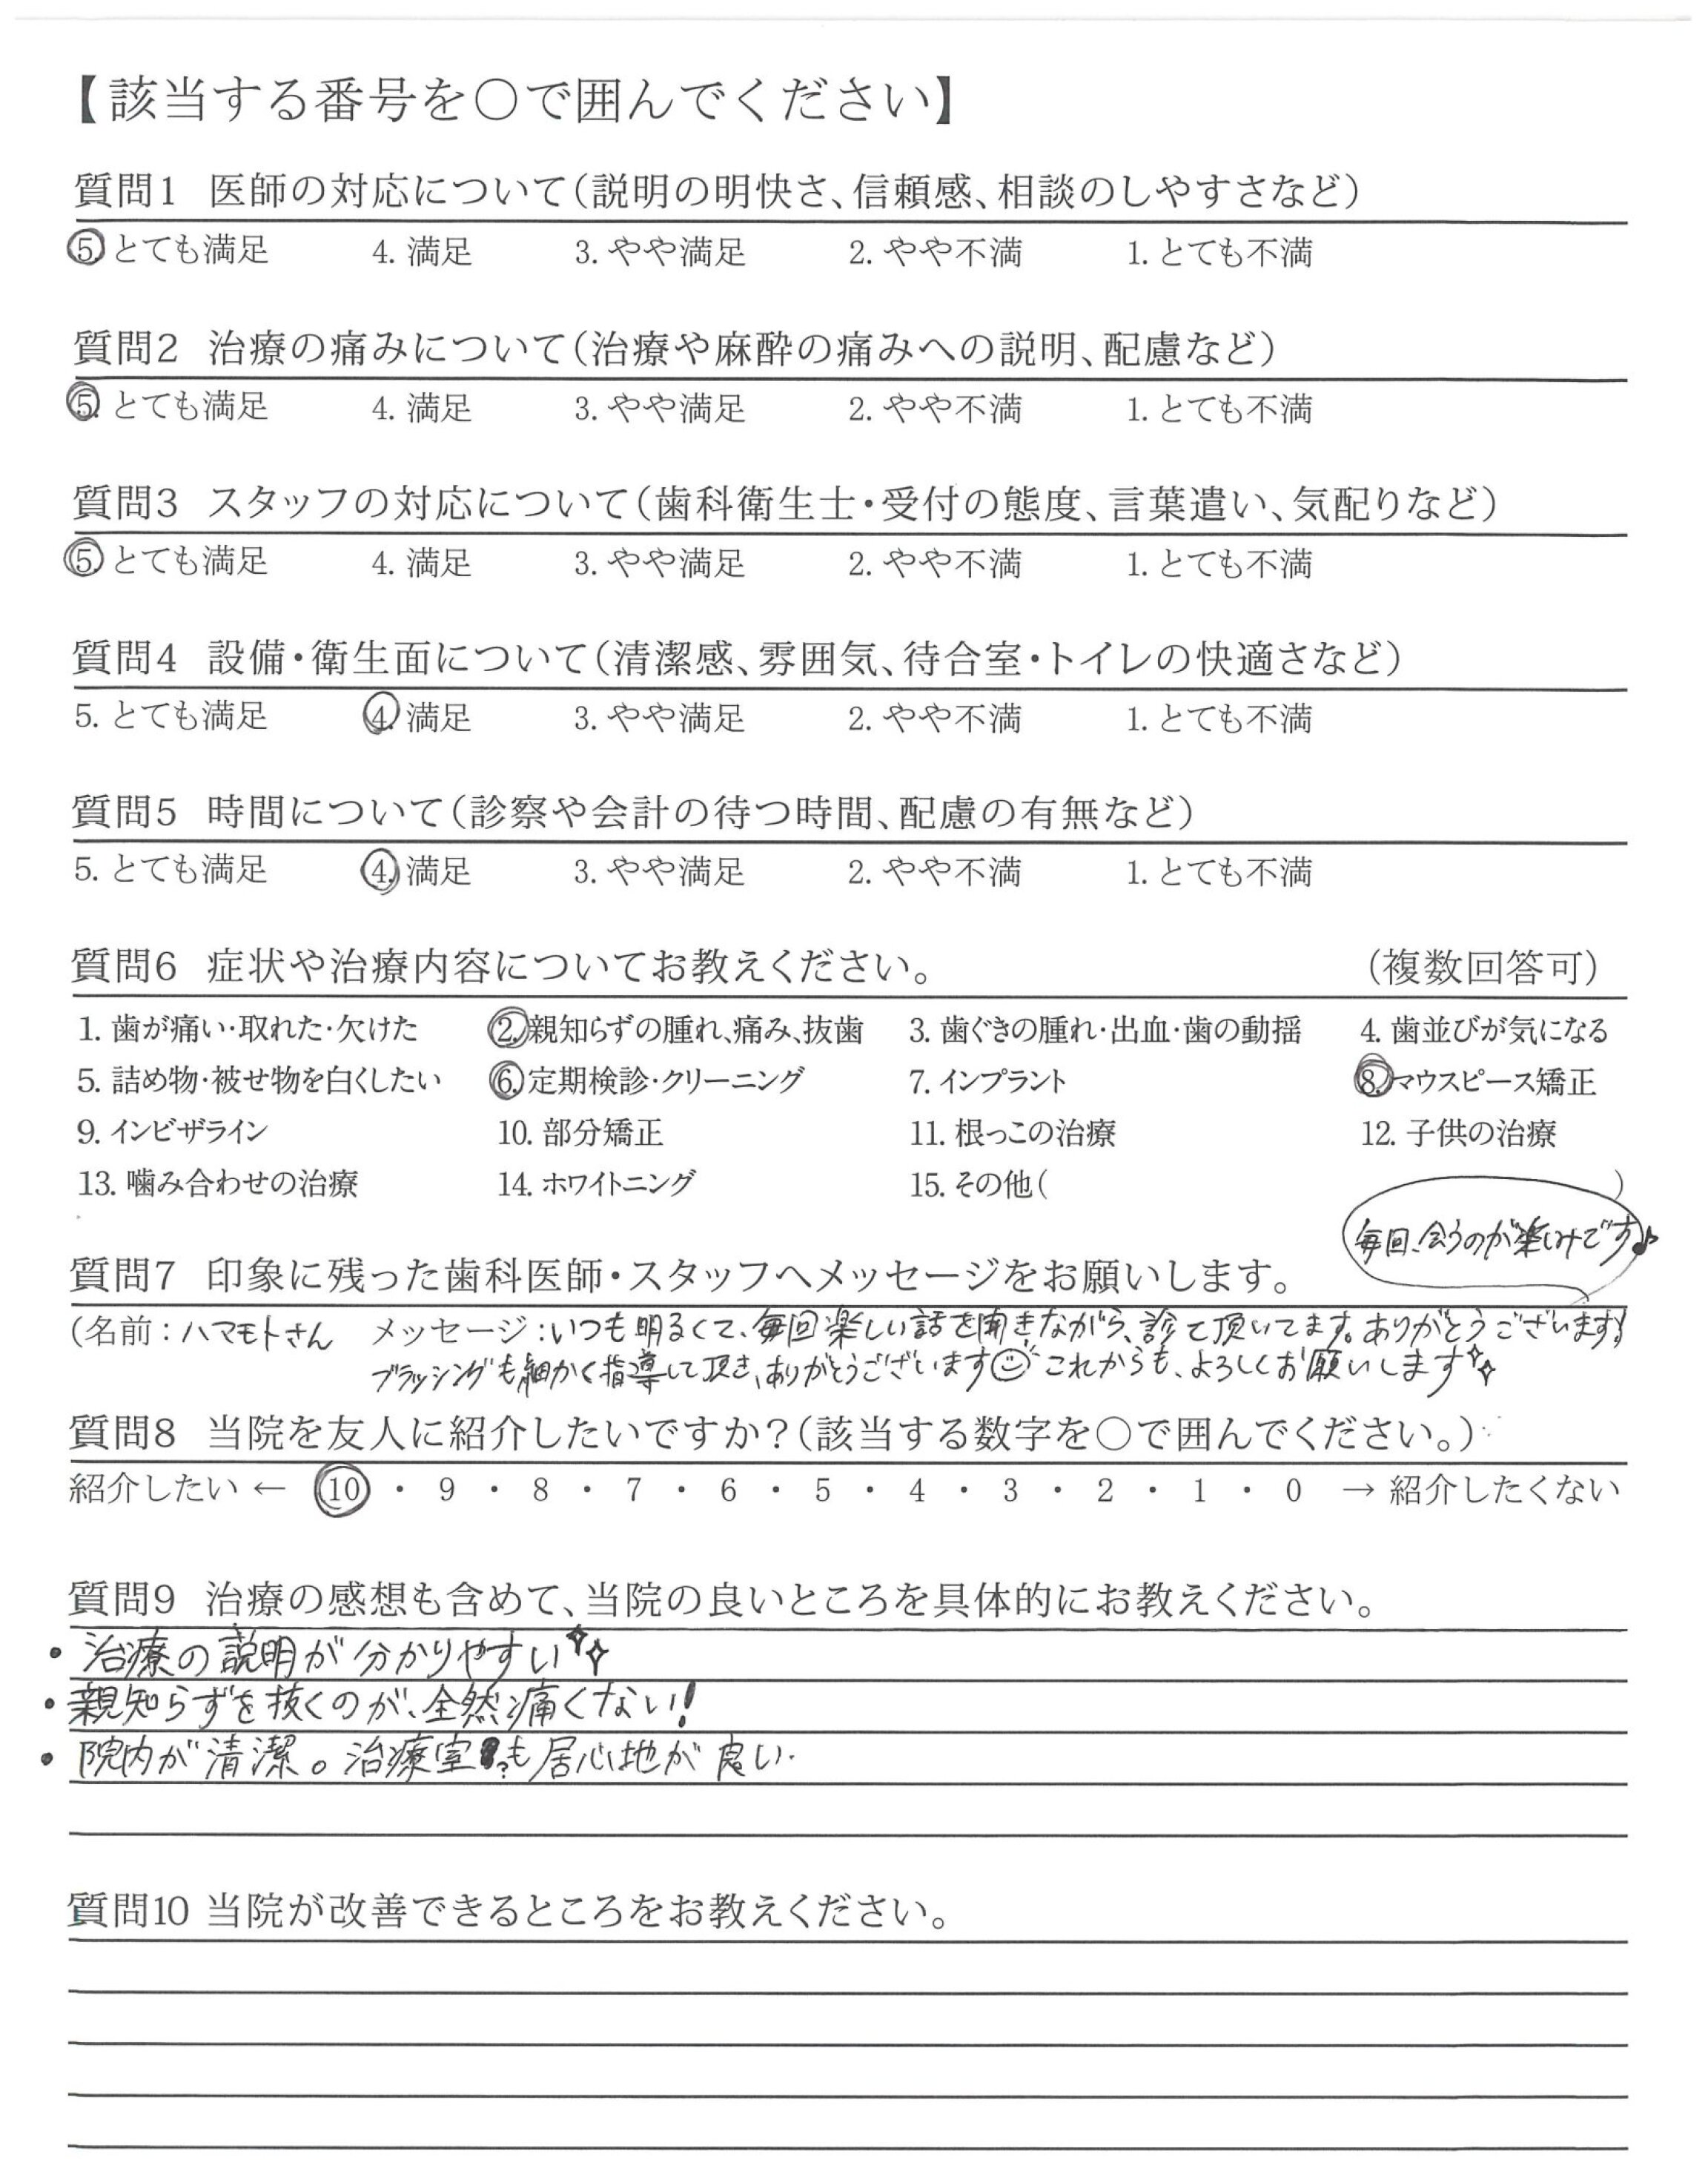 【該当する番号を○で囲んでください】
質問1 医師の対応について(説明の明快さ、信頼感、相談のしやすさなど)
5. とても満足 4. 満足 3. やや満足 2. やや不満 1. とても不満
質問2 治療の痛みについて(治療や麻酔の痛みへの説明、配慮など)
5. とても満足 4. 満足 3. やや満足 2. やや不満 1. とても不満
質問3 スタッフの対応について(歯科衛生士・受付の態度、言葉遣い、気配りなど)
5. とても満足 4. 満足 3. やや満足 2. やや不満 1. とても不満
質問4 設備・衛生面について(清潔感、雰囲気、待合室・トイレの快適さなど)
5. とても満足 4. 満足 3. やや満足 2. やや不満 1. とても不満
質問5 時間について(診察や会計の待つ時間、配慮の有無など)
5. とても満足 4. 満足 3. やや満足 2. やや不満 1. とても不満
質問6 症状や治療内容についてお教えください。 (複数回答可)
1. 歯が痛い・取れた・欠けた 2. 親知らずの腫れ、痛み、抜歯 3. 歯ぐきの腫れ・出血・歯の動揺 4. 歯並びが気になる
5. 詰め物・被せ物を白くしたい 6. 定期検診・クリーニング 7. インプラント 8. マウスピース矯正
9. インビザライン 10. 部分矯正 11. 根っこの治療 12. 子供の治療
13. 噛み合わせの治療 14. ホワイトニング 15. その他( )
毎回、会うのが楽しみです♪
質問7 印象に残った歯科医師・スタッフへメッセージをお願いします。
(名前：ハマモトさん メッセージ：いつも明るくて、毎回楽しい話を聞きながら、診て頂いてます。ありがとうございます!
ブラッシングも細かく指導して頂き、ありがとうございます☺ これからも、よろしくお願いします✨
質問8 当院を友人に紹介したいですか？(該当する数字を○で囲んでください。)
紹介したい ← 10 ・ 9 ・ 8 ・ 7 ・ 6 ・ 5 ・ 4 ・ 3 ・ 2 ・ 1 ・ 0 → 紹介したくない
質問9 治療の感想も含めて、当院の良いところを具体的にお教えください。
・治療の説明が分かりやすい✨
・親知らずを抜くのが、全然痛くない!
・院内が清潔。治療室も居心地が良い.
質問10 当院が改善できるところをお教えください。